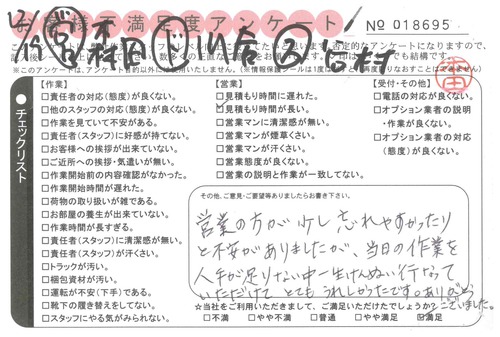 お客様満足度アンケート
No 018695
【作業】
□責任者の対応(態度)が良くない。
□他のスタッフの対応(態度)が良くない。
□作業を見ていて不安がある。
□責任者(スタッフ)に好感が持てない。
□お客様への挨拶が出来ていない。
□ご近所への挨拶・気遣いが無い。
□作業開始前の内容確認がなかった。
□作業開始時間が遅れた。
□荷物の取り扱いが雑である。
□お部屋の養生が出来ていない。
□作業時間が長すぎる。
□責任者(スタッフ)に清潔感が無い。
□責任者(スタッフ)が汗くさい。
□トラックが汚い。
□梱包資材が汚い。
□運転が不安(下手)である。
□靴下の履き替えをしてない。
□スタッフにやる気がみられない。
【営業】
□見積もり時間に遅れた。
□見積もり時間が長い。
□営業マンに清潔感が無い。
□営業マンが煙草くさい。
□営業マンが汗くさい。
□営業態度が良くない。
□営業の説明と作業が一致してない。
【受付・その他】
□電話の対応が良くない。
□オプション業者の説明
・作業が良くない。
□オプション業者の対応
(態度)が良くない。
●チェックリスト
その他、ご意見・ご要望等ありましたらお書き下さい。
営業の方が少し忘れやすかったり
と不安がありましたが、当日の作業を
人手が足りない中一生けんぬい行なって
いただけて、とてもうれしかったです。ありがとうございました。
☆当社をご利用いただきまして、ご満足いただけたでしょうか?
□不満 □やや不満 □普通 □やや満足 ☑満足